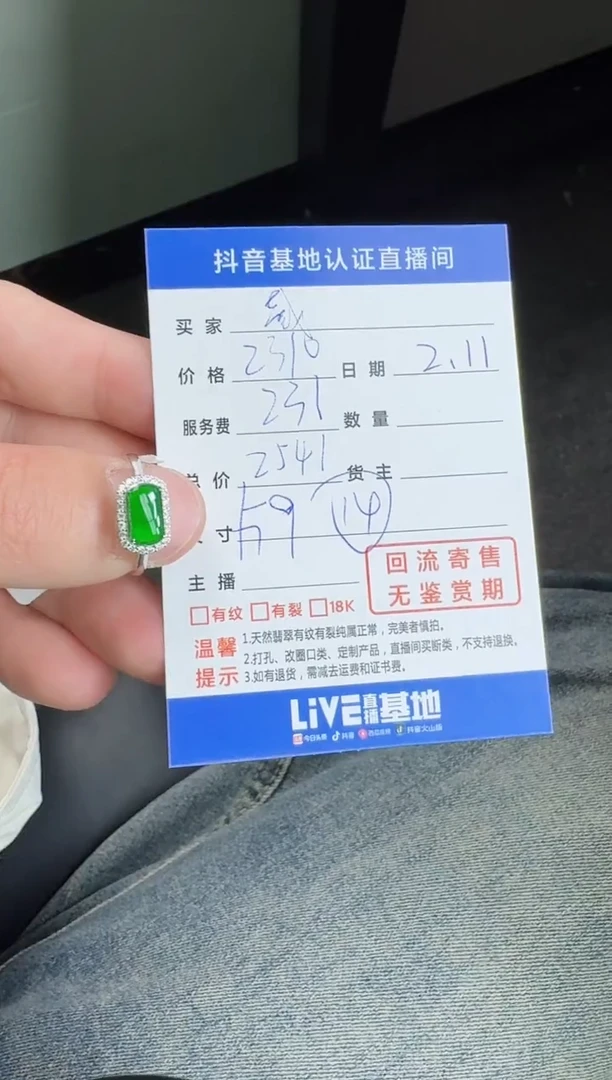 抖音基地认证直播间
买家
价格 2310 日期 2.11
服务费 231 数量
总价 2541 货主
寸 14
主播
回流寄售
无鉴赏期
□有纹 □有裂 □18K
温馨提示
1.天然翡翠有纹有裂纯属正常，完美者慎拍。
2.打孔、改圈口类、定制产品，直播间买断类，不支持退换。
3.如有退货，需减去运费和证书费。
LiVE直播基地
今日头条 抖音 西瓜视频 抖音火山版